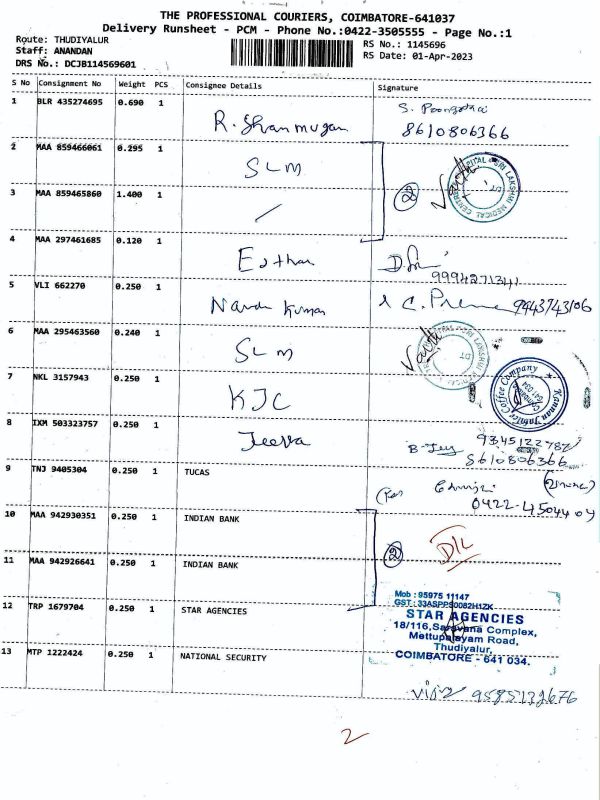 THE PROFESSIONAL COURIERS, COIMBATORE-641037
Delivery Runsheet - PCM - Phone No.:0422-3505555 - Page No.:1
Route: THUDIYALUR
Staff: ANANDAN
DRS No.: DCJB114569601
RS No.: 1145696
RS Date: 01-Apr-2023
S No Consignment No Weight PCS Consignee Details Signature
1 BLR 435274695 0.690 1 R. Shanmugan
8610806366
2 MAA 859466061 0.295 1 SLM
3 MAA 859465860 1.400 1
2
SRI LAKSHMI MEDICAL CENTRE
4 MAA 297461685 0.120 1 Esther
9994271341
5 VLI 662270 0.250 1 Nanda Kumar
9943743106
6 MAA 295463560 0.240 1 SLM
7 NKL 3157943 0.250 1 KJC
Kannan Jubilee Coffee Company
8 IXM 503323757 0.250 1 Jeeva
8610806366
9 TNJ 9405304 0.250 1 TUCAS
0422-4504404
10 MAA 942930351 0.250 1 INDIAN BANK
2
11 MAA 942926641 0.250 1 INDIAN BANK
12 TRP 1679704 0.250 1 STAR AGENCIES
Mob : 95975 11147
GST : 33ASPPS0082H1ZK
STAR AGENCIES
18/116, Saravana Complex,
Mettupalayam Road,
Thudiyalur,
COIMBATORE - 641 034.
13 MTP 1222424 0.250 1 NATIONAL SECURITY
2